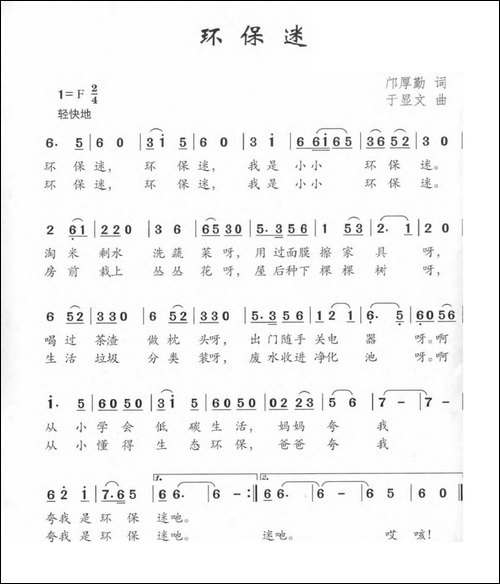 环保迷
邝厚勤 词
1=F 2/4
于显文 曲
轻快地
6. 5 | 6 0 | 3 i 5 | 6 0 | 3 i | 6 6 i 6 5 | 3 6 5 2 | 3 0 |
环 保 迷， 环 保 迷， 我 是 小 小 环 保 迷。
环 保 迷， 环 保 迷， 我 是 小 小 环 保 迷。
2 6 1 | 2 2 0 | 3 6 | 6 5 3 0 | 5. 3 5 6 | 1 5 3 | 2. 1 | 2 0 |
淘 米 剩水 洗 蔬 菜 呀， 用 过面膜 擦 家 具 呀，
房 前 栽上 丛 丛 花 呀， 屋 后种下 棵 棵 树 呀，
6 5 2 | 3 3 0 | 6 5 2 | 3 3 0 | 5. 3 5 6 | 1 2 1 | 6. 5 | 6 0 5 6 |
喝 过 茶渣 做 枕 头呀， 出 门随手 关 电 器 呀。啊
生 活 垃圾 分 类 装呀， 废 水收进 净 化 池 呀。啊
i. 5 | 6 0 5 0 | 3 i 5 | 6 0 5 0 | 0 2 2 3 | 5 6 | 7 - | 7 - |
从 小 学 会 低 碳 生 活， 妈妈 夸 我
从 小 懂 得 生 态 环 保， 爸爸 夸 我
6 2 i | 7. 6 5 | 6 6. | 6 - :‖ 6 6. | 6 6. | 6 0 ‖
1.
2.
夸我 是 环 保 迷吔。
夸我 是 环 保 迷吔。 迷吔。 哎 咳！